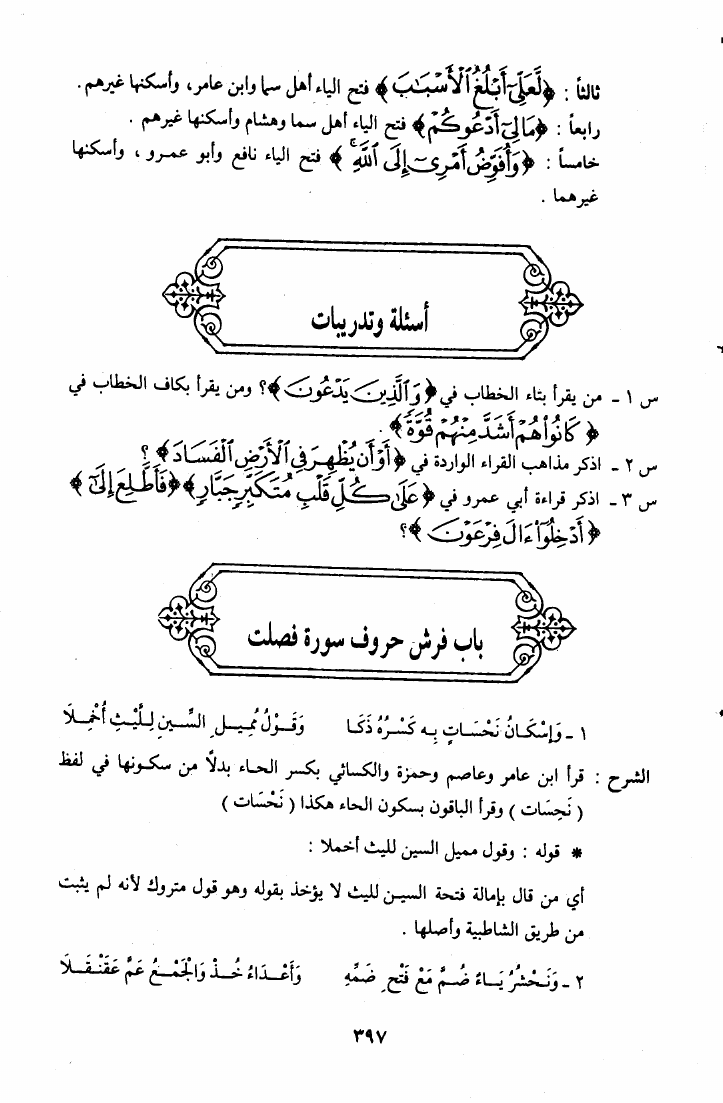 ثالثاً : ﴿ لَّعَلِّىٓ أَبْلُغُ ٱلْأَسْبَـٰبَ ﴾ فتح الياء أهل سما وابن عامر، وأسكنها غيرهم .
رابعاً : ﴿ مَا لِىٓ أَدْعُوكُمْ ﴾ فتح الياء أهل سما وهشام وأسكنها غيرهم .
خامساً : ﴿ وَأُفَوِّضُ أَمْرِىٓ إِلَى ٱللَّهِ ۚ ﴾ فتح الياء نافع وأبو عمرو ، وأسكنها
غيرهما .
أسئلة وتدريبات
س ١ - من يقرأ بتاء الخطاب في ﴿ وَٱلَّذِينَ يَدْعُونَ ﴾؟ ومن يقرأ بكاف الخطاب في
﴿ كَانُوا۟ هُمْ أَشَدَّ مِنْهُمْ قُوَّةً ﴾ .
س ٢ - اذكر مذاهب القراء الواردة في ﴿ أَوْ أَن يُظْهِرَ فِى ٱلْأَرْضِ ٱلْفَسَادَ ﴾ ؟
س ٣ - اذكر قراءة أبي عمرو في ﴿ عَلَىٰ كُلِّ قَلْبِ مُتَكَبِّرٍ جَبَّارٍ ﴾ ﴿ فَأَطَّلِعَ إِلَىٰٓ ﴾
﴿ أَدْخِلُوٓا۟ ءَالَ فِرْعَوْنَ ﴾؟
باب فرش حروف سورة فصلت
١ - وَإِسْكَانُ نَحْسَاتٍ بِهِ كَسْرُهُ ذَكَا وَقَوْلُ مُمِيلِ السِّينِ لِلَّيْثِ أُخْمِلَا
الشرح : قرأ ابن عامر وعاصم وحمزة والكسائي بكسر الحاء بدلاً من سكونها في لفظ
( نَحِسَات ) وقرأ الباقون بسكون الحاء هكذا ( نَحْسَات )
* قوله : وقول مميل السين لليث أخملا :
أي من قال بإمالة فتحة السين لليث لا يؤخذ بقوله وهو قول متروك لأنه لم يثبت
من طريق الشاطبية وأصلها .
٢ - وَنَحْشُرُ يَاءٌ ضُمَّ مَعْ فَتْحِ ضَمِّهِ وَأَعْدَاءُ خُذْ وَالْجَمْعُ عَمَّ عَقَنْقَلَا
٣٩٧